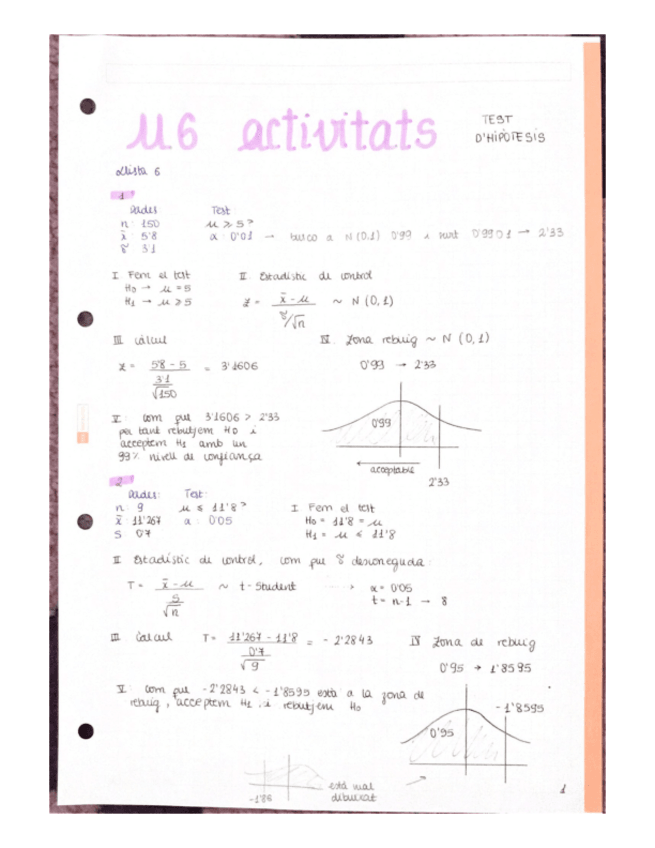 U6 activitats
TEST
D'HIPÒTESIS
Llista 6
1
Dades
Test
n: 150
μ ≥ 5?
x̄: 5'8
α: 0'01 → busco a N(0,1) 0'99 i surt 0'9901 → 2'33
3'1
I Fem el test
H0 → μ = 5
H1 → μ ≥ 5
II Estadístic de control
z = x̄ - μ / (σ/√n) ~ N (0,1)
III Càlcul
z = 5'8 - 5 / (3'1/√150) = 3'1606
IV. Zona rebuig ~ N (0,1)
0'99 → 2'33
V: com que 3'1606 > 2'33
per tant rebutjem H0 i
acceptem H1 amb un
99% nivell de confiança
0'99
acceptable
2'33
2
Dades: Test:
n: 9 μ ≤ 11'8?
x̄: 11'267 α: 0'05
S 0'7
I Fem el test
H0 = 11'8 = μ
H1 = μ ≤ 11'8
II Estadístic de control, com que σ desconeguda:
T = x̄ - μ / (S/√n) ~ t-Student → α = 0'05
t = n-1 → 8
III Càlcul T = 11'267 - 11'8 / (0'7/√9) = - 2'2843
IV Zona de rebuig
0'95 → 1'8595
V: com que -2'2843 < -1'8595 està a la zona de
rebuig, acceptem H1 i rebutjem H0
-1'8595
0'95
-1'86
està mal
dibuixat
1